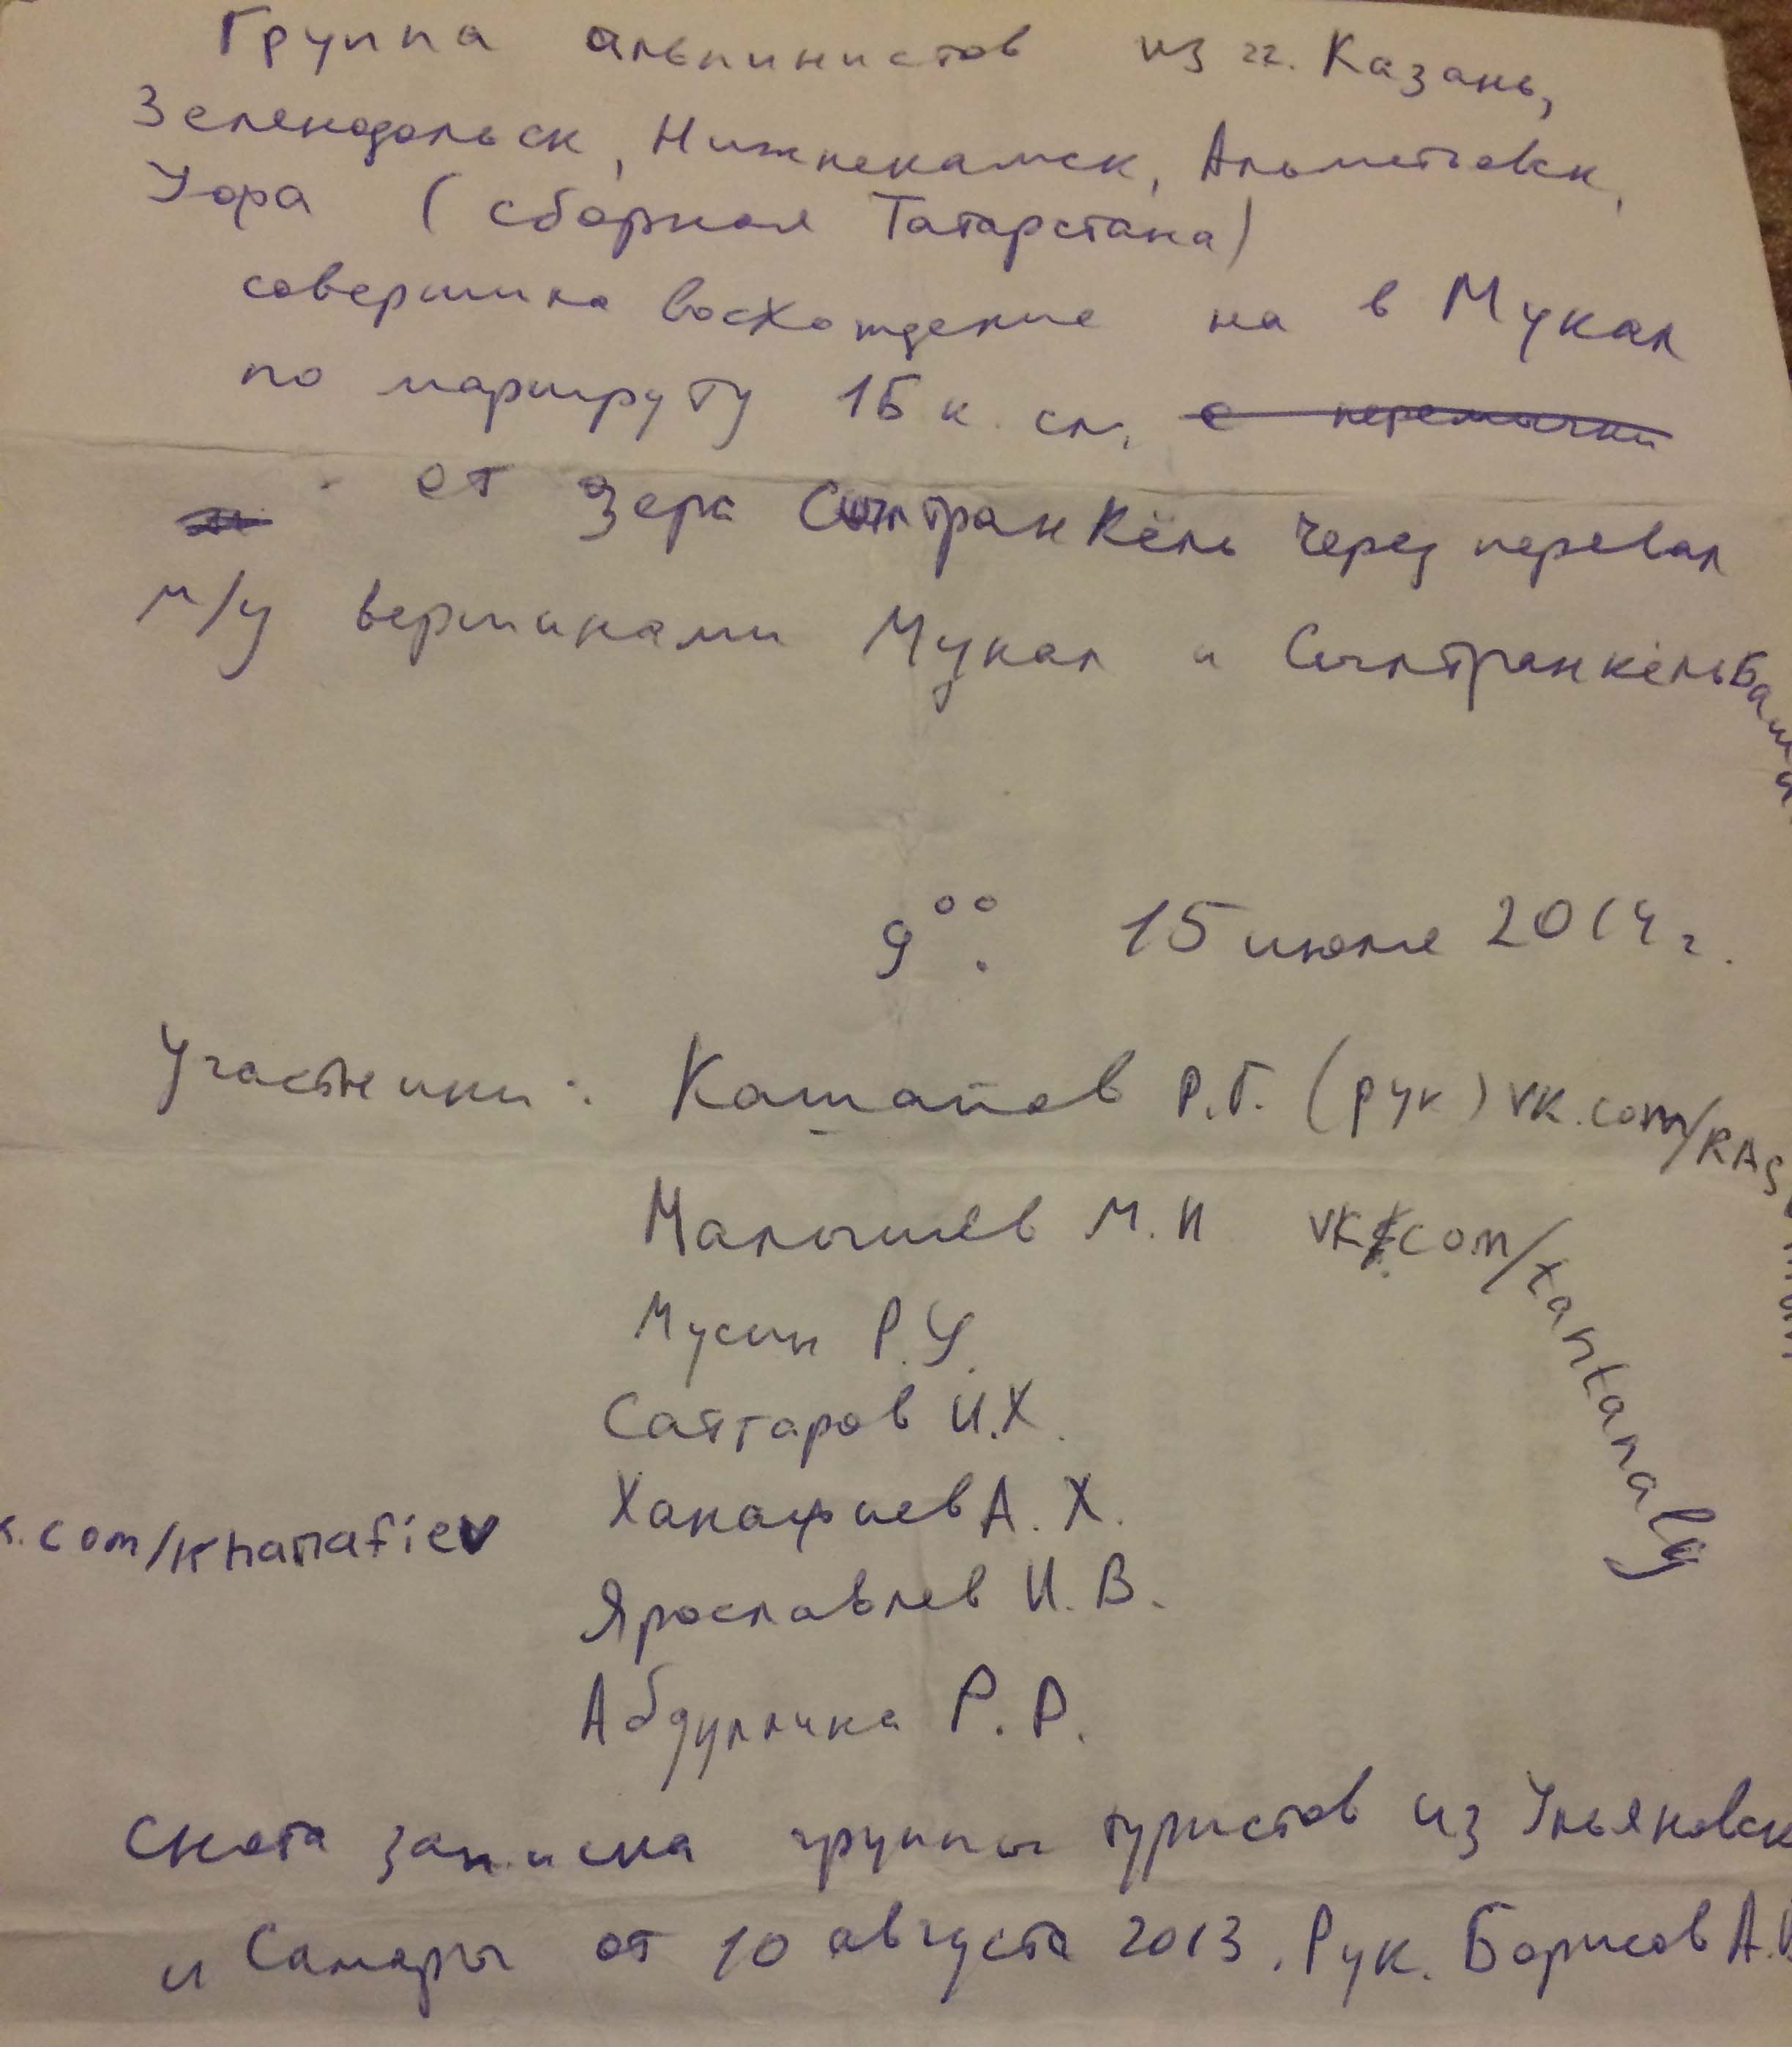 Группа альпинистов из гг. Казань,
Зеленодольск, Нижнекамск, Альметьевск,
Уфа (сборная Татарстана)
совершила восхождение на в Мукал
по маршруту 1Б к. сл. с перемычки
от озера Сылтранкёль через перевал
м/у вершинами Мукал и СылтранкёльБаши
9°°. 15 июля 2014 г.
Участники: Кашапов Р.Г. (рук) vk.com/RAS
Малышев М.И vk.com/xantanaly
Мусин Р.У.
Саттаров И.Х.
Ханафиев А.Х.
k.com/khanafiev
Ярославлев И.В.
Абдуллина Р.Р.
Снята записка группы туристов из Ульяновск
и Самары от 10 августа 2013. Рук. Борисов А.